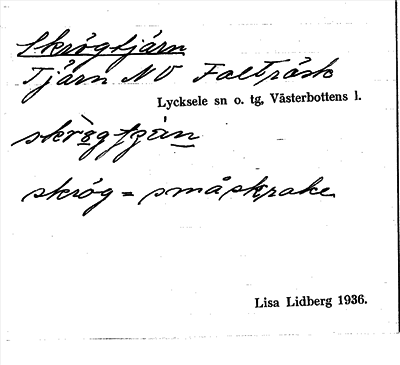 Skrögtjärn
Tjärn NV Falträsk
Lycksele sn o. tg, Västerbottens l.
skröig
skrög = småskrake
Lisa Lidberg 1936.